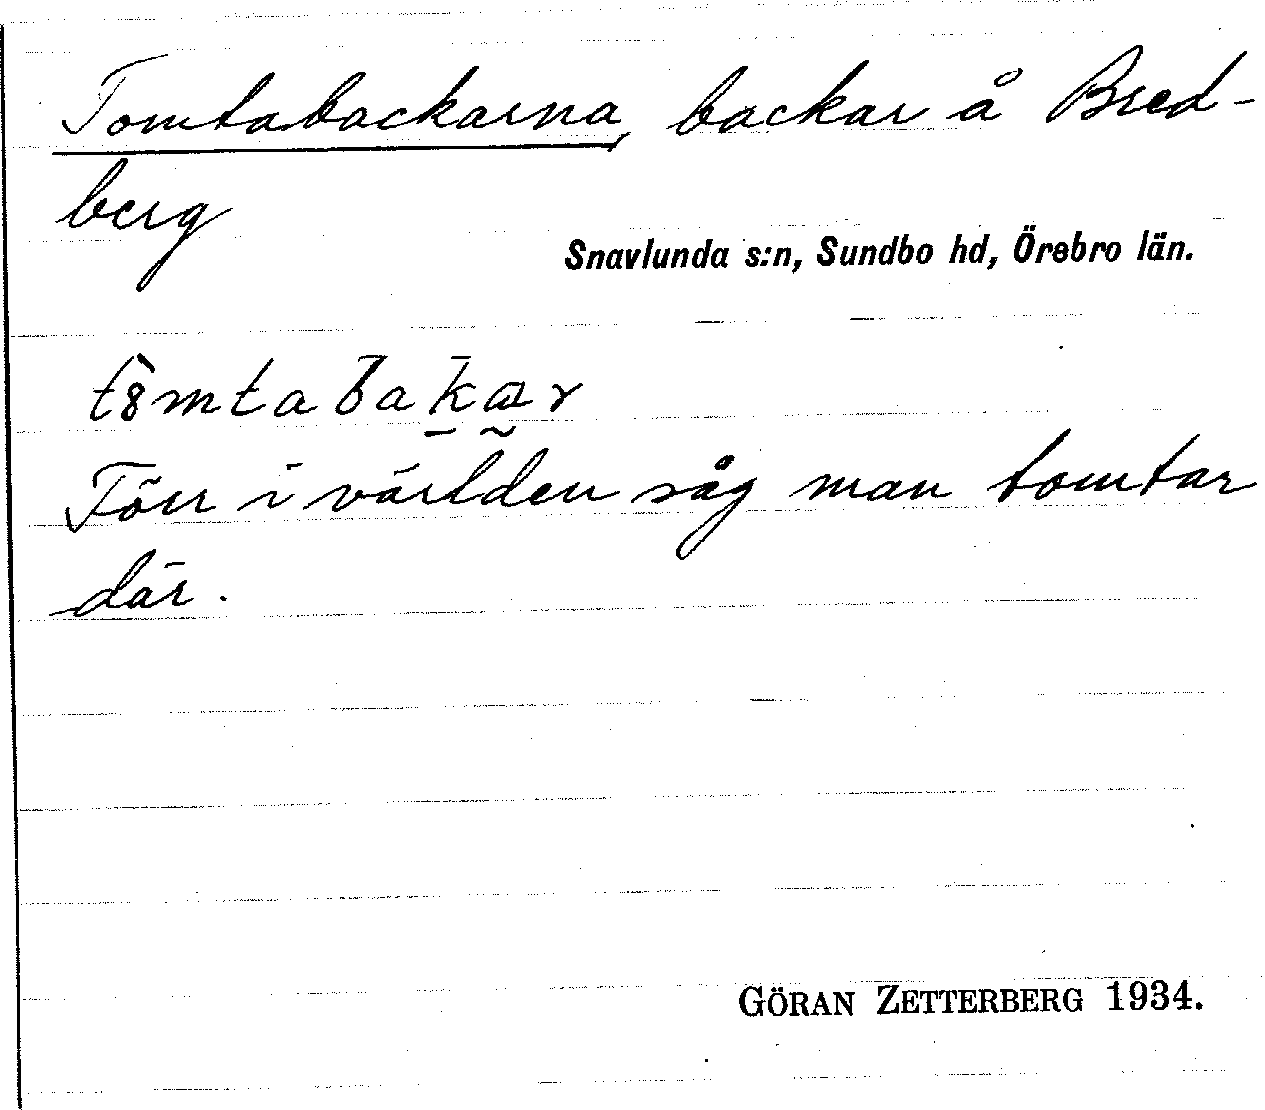 Tomtabackarna, backar å Bred-
berg
Snavlunda s:n, Sundbo hd, Örebro län.
tȣ̀mtabakar
Förr i världen såg man tomtar
där.
GÖRAN ZETTERBERG 1934.